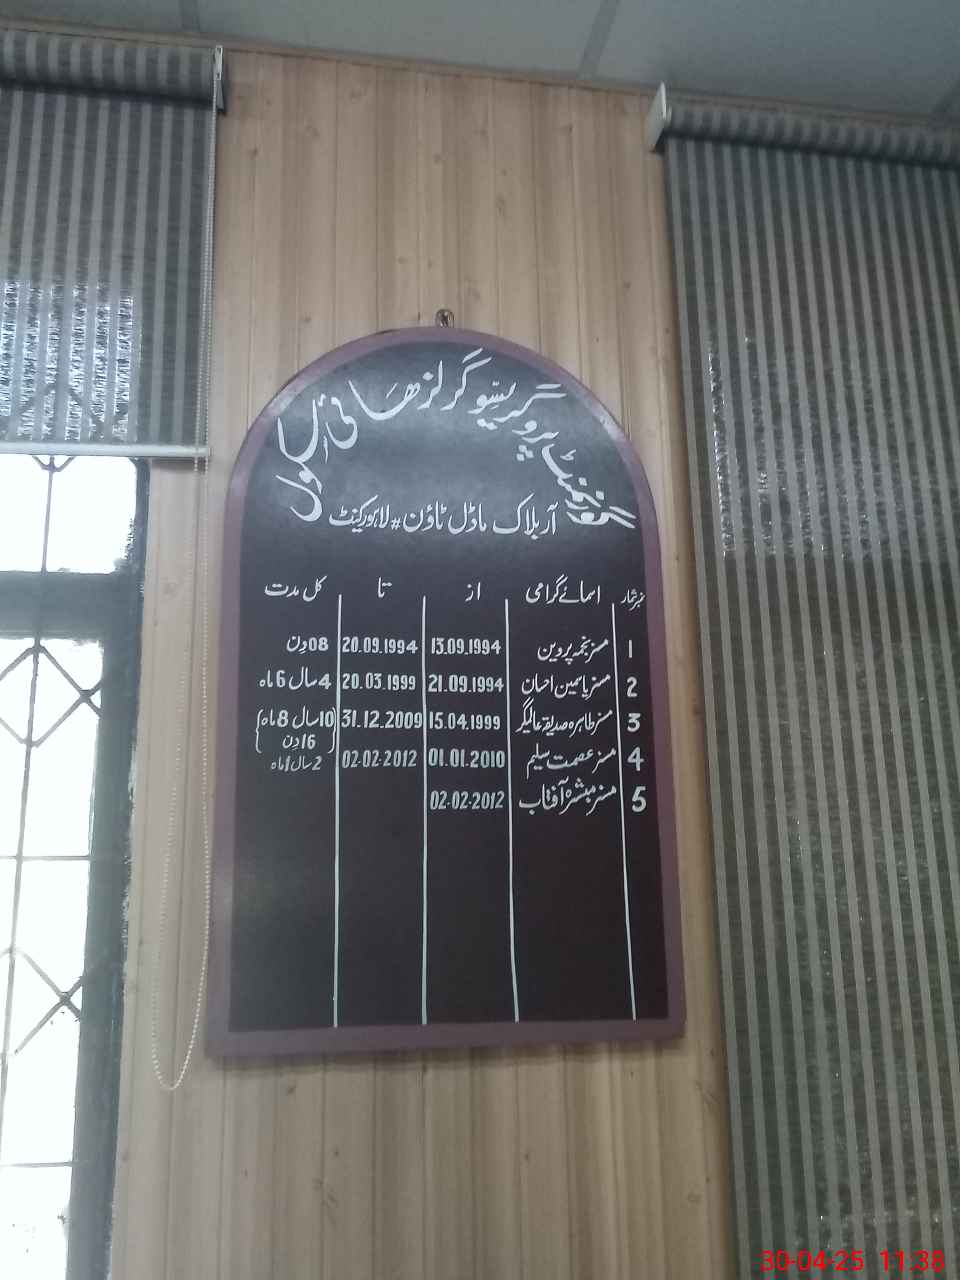 گورنمنٹ پروگریسیو گرلز ھائی اسکول
آر بلاک ماڈل ٹاؤن # لاہور کینٹ
نمبر شمار اسمائے گرامی از تا کل مدت
1 مسز نجمہ پروین 13.09.1994 20.09.1994 08 دِن
2 مسز یاسمین احسان 21.09.1994 20.03.1999 4 سال 6 ماہ
3 مسز طاہرہ صدیقہ عالمگیر 15.04.1999 31.12.2009 {10 سال 8 ماہ
16 دِن}
4 مسز عصمت سلیم 01.01.2010 02-02-2012 2 سال 1 ماہ
5 مسز مبشرہ آفتاب 02-02-2012
30-04-25 11:38